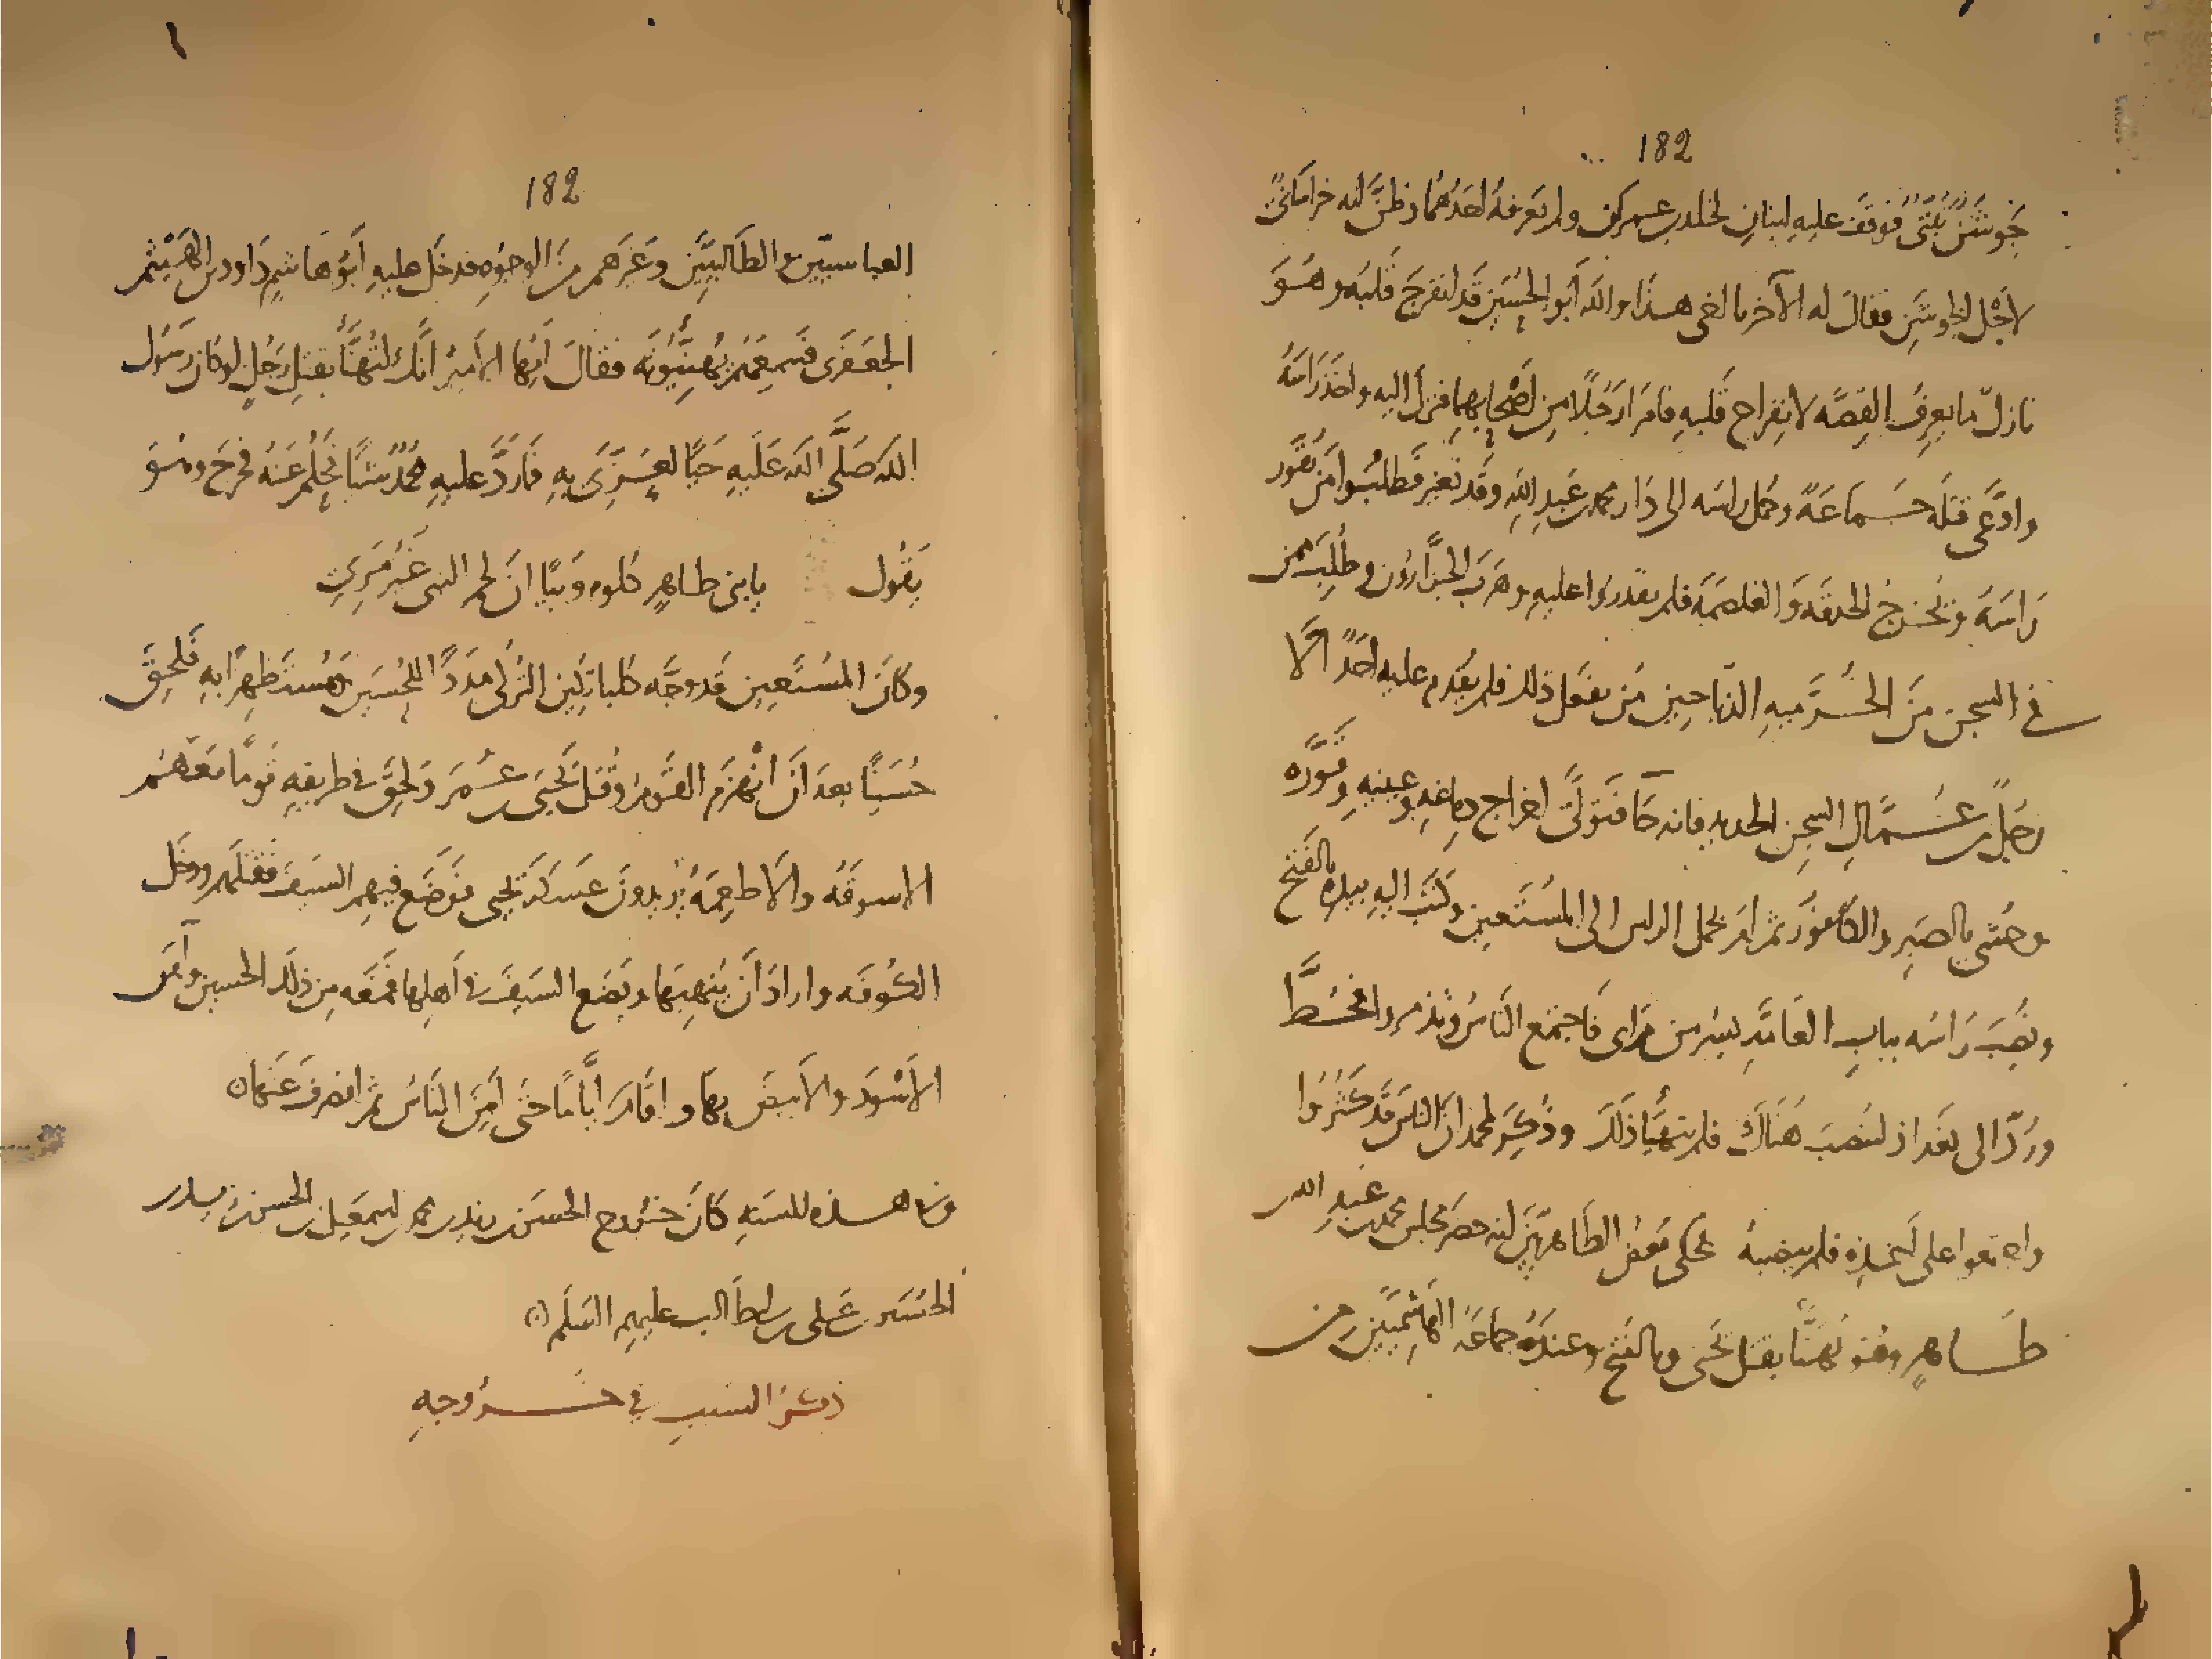 182
جَوشَنٌ تُبَّتيٌّ فوقَفَ عليه ابنانِ لخلد بن عمركن ولم يَعرفهُ احَدُهُما وظنَّ انه خراسَانيٌّ
لاجْل الجوشَنِ فقالَ له الآخر يا اخى هذا والله اَبو الحُسَين قد انفرجَ قَلبُه وهُوَ
نازلٌ ما يعرفُ القِصَّه لانفِراجِ قلبِهِ فامَرَا رَجُلًا مِن اَصْحابِهما فنزلَ اليه واخَذ رَاسَهُ
وادَّعى قتلَه جماعَةٌ وحُمل راسَه الى دَار محمد بن عَبدِ اللهِ وقد تغيّر فطلبُوا مَن يُقَوّر
رَاسَهُ ويُخرجُ الحدقَه والغلصَمَه فلم يقدروُا عليهِ وهَرَبَ الجزَّارُون وطُلِبَ ممن
فى السجن مِنَ الخُرَّميهِ الذبّاحِين مَن يفعَل ذلك فلم يقدم عليه اَحَدٌ الّا
رَجُلٌ من عُمّالِ السِّجنِ الجديد فانه جَآ فتولَّى اِخراج دِماغهِ وعينيهِ وقَوَّره
وحُشى بالصبِر والكافُور ثم اَمَر بحمل الراس الى المُستَعين وكَتَبَ اليهِ بيدهِ بالفتح
ونصَبَ رَاسَه ببابِ العَامّهِ بسُرّ من رَاى فاجتمع الناسُ وتذمروا فحُطّ
ورُدَّ الى بَغداذ لينُصبَ هُنَاكَ فلم يتهيَّأ ذلكَ وذُكِرَ لمحمد انّ الناسَ قد كَثُرُوا
واجتمعوا على اَخذهِ فلم ينصبهُ فحكى بعضُ الطاهرييّن انه حضَر مجلسَ محمد بن عَبدِ الله بن
طَاهرٍ وهُوَ يُهنّأ بقتل يَحيَى وبالفتح وعندَهُ جماعَة الهاشميّينَ من
182
العباسييّن والطالبيّينَ وغيرهم مِنَ الوجُوهِ فدخَل عليهِ اَبُو هَاشمٍ دَاود بن الهَيْثم
الجعفَرى فسَمِعَهُمْ يُهنِّئُونَه فقالَ ايُّها الاَميرُ انَّك لتُهنَّأُ بقتِل رَجُلٍ لو كان رَسُول
اللهِ صَلَّى اللهُ عَلَيهِ حَيًّا لعُزِّىَ بِهِ فمارَدَّ عليهِ محمّدٌ شيئًا فخرَجَ عَنهُ وهُوَ
يَقُول يا بنى طاهِرٍ كلوه وَبيًّا انّ لحم النبى غَيرُ مَرِىّ
وكانَ المُستَعين قد وجَّه كلباتكِين التُركى مَدَدًا للحُسَين ومُستظهِرًا به فَلحِقَ
حُسَينًا بعدَ اَن انْهَزم القَومُ وقُتل يَحيَى بن عُمَر ولحِقَ فى طريقهِ قومًا معَهُم
الاسوقَه والاَطعِمَهُ يُريدونَ عَسكرَ يحيى فوَضَع فيهم السيَفَ فقتلَهم ودخل
الكُوفَه وارادَ اَن يُنهبَها ويَضَع السيَفَ فى اَهلِها فمنعَه مِن ذلكَ الحسين وآمَنَ
الاَسْوَد والاَبيضَ بها واقامَ ايَّامًا حَتى اَمِنَ النّاسُ ثم انصرفَ عَنها ٥
وفى هذه السنَهِ كانَ خرُوج الحسَن بن زيد بن محمد بن اسمعيل بن الحسن بن زيد بن
الحسَن بن عَلى بن ابى طَالب عليهم السّلَم ٥
ذكرُ السَببِ فى خُرُوجِهِ